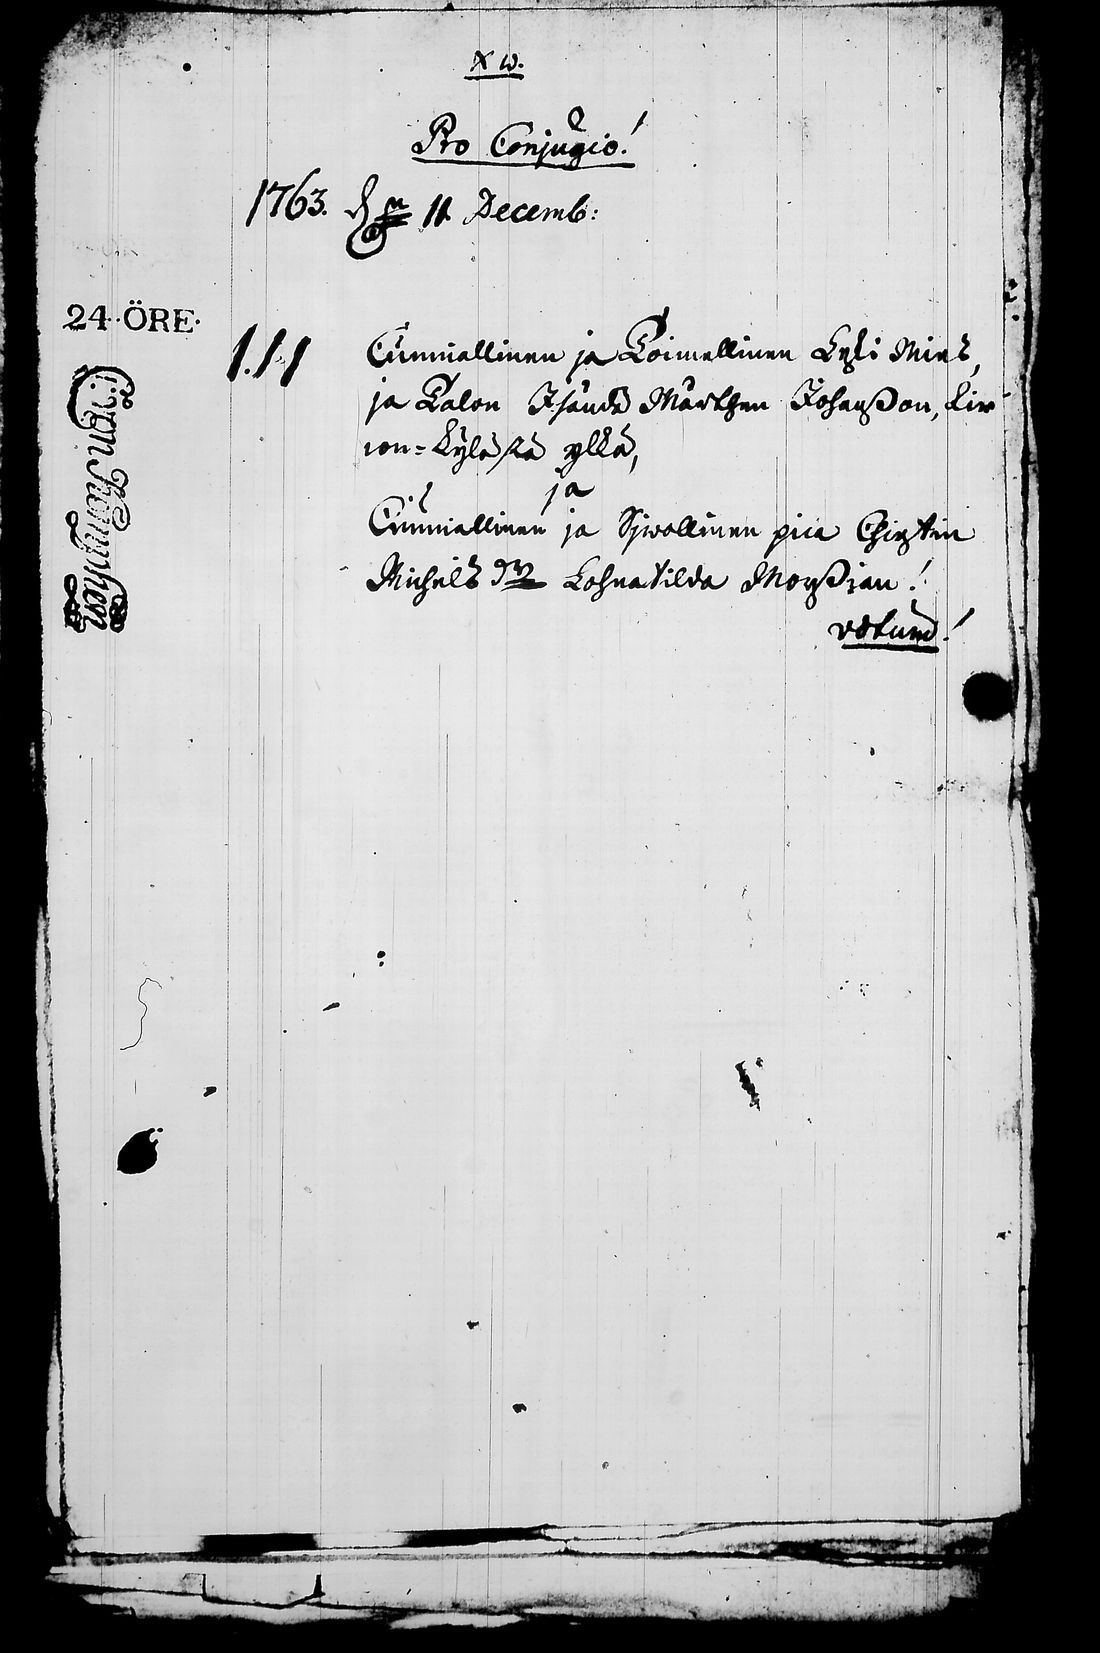 X W.
Pro Conjugio!
1763. d 11 Decemb:
24 ÖRE.
1. 1. 1
Cunniallinen ja Toimellinen Leski Mies,
ja Talon Isändä Mårthen Johansson, Kir
con-Kylästä ylkä,
ja
Cunniallinen ja Sjwollinen pica Chirstin
Michels dr Kohnatilda Morsian!